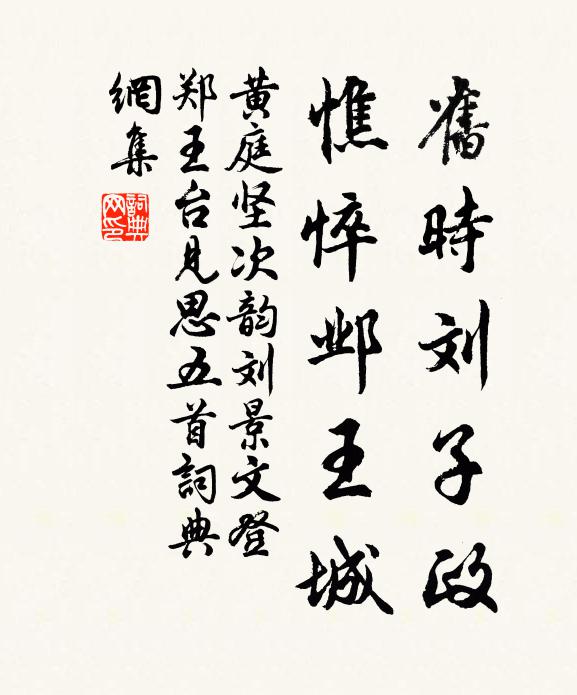 舊時刘子政
憔悴邺王城
黄庭坚次韵刘景文登
郑王台見思五首詞典
網集
詞典
网印